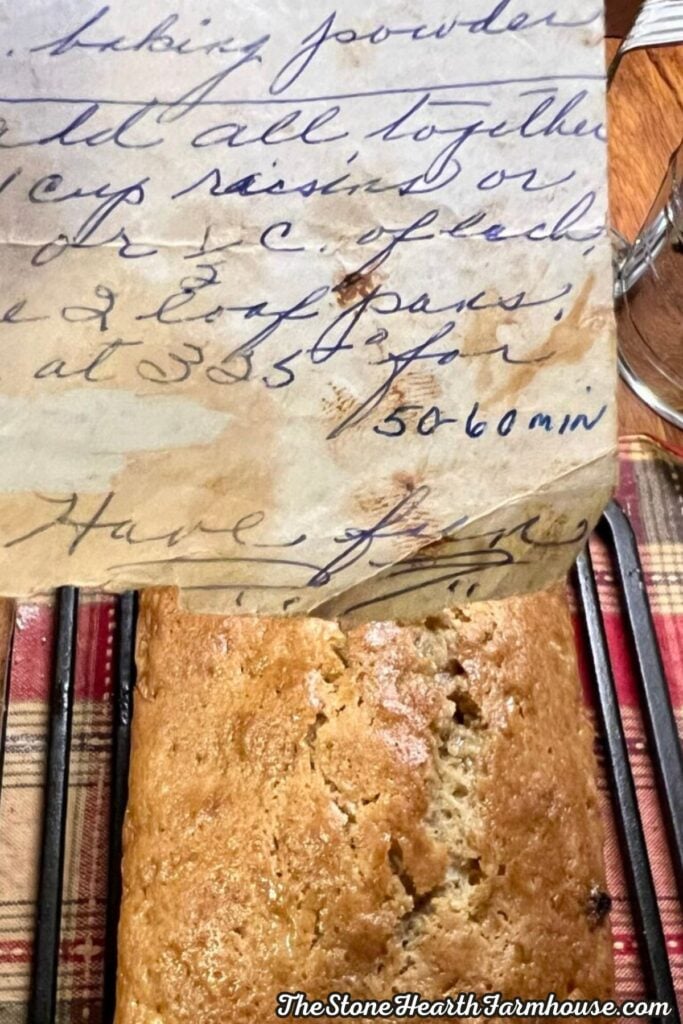 . baking powder
add all together
1 cup raisins or
or 1/2 C. of each.
e 2 loaf pans.
at 325° for
50-60 MIN
Have fun
TheStoneHearthFarmhouse.com